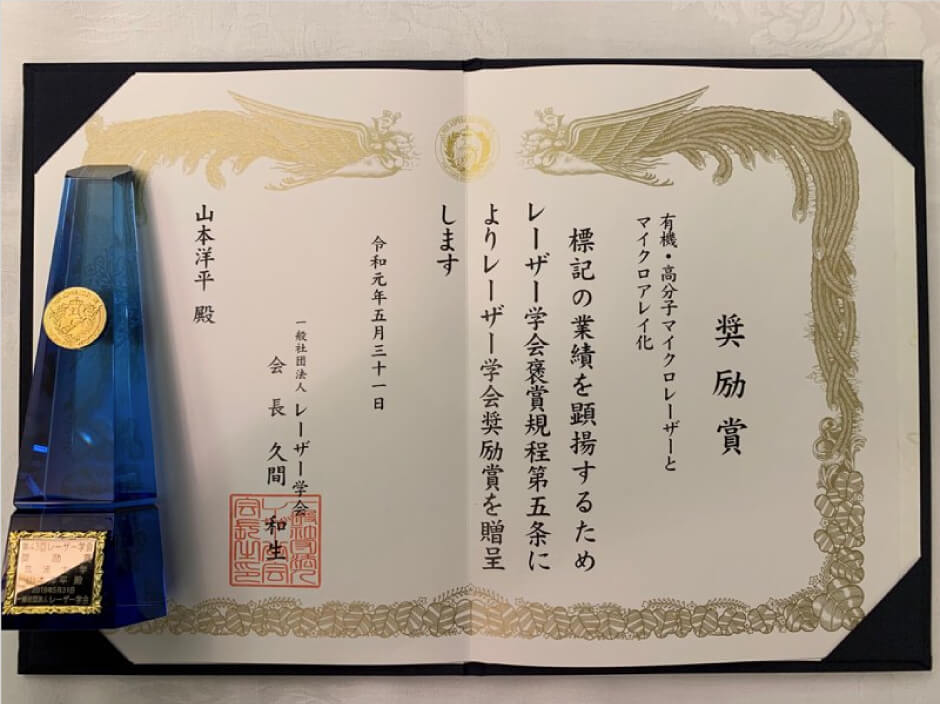 奨励賞
有機・高分子マイクロレーザーと
マイクロアレイ化
標記の業績を顕揚するため
レーザー学会褒賞規程第五条に
よりレーザー学会奨励賞を贈呈
します
令和元年五月三十一日
一般社団法人 レーザー学会
会長 久間 和生
山本洋平 殿
第43回レーザー学会
奨励賞
2019年5月31日
一般社団法人レーザー学会